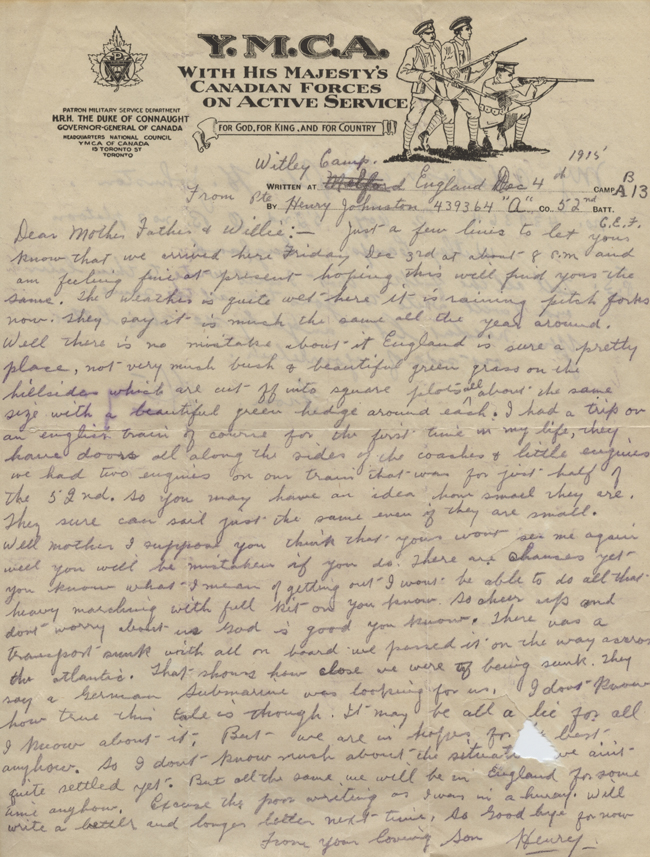 Y.M.C.A.
WITH HIS MAJESTY'S
CANADIAN FORCES
ON ACTIVE SERVICE
PATRON MILITARY SERVICE DEPARTMENT
H.R.H. THE DUKE OF CONNAUGHT
GOVERNOR-GENERAL OF CANADA
HEADQUARTERS NATIONAL COUNCIL
Y.M.C.A. OF CANADA
15 TORONTO ST
TORONTO
FOR GOD, FOR KING, AND FOR COUNTRY
Witley Camp. 1915
WRITTEN AT Milford England Dec 4th CAMP B A 13
From Pte
BY Henry Johnston 439364 "A" Co. 52nd BATT.
C.E.F.
Dear Mother Father & Willie:— Just a few lines to let yous
know that we arrived here Friday Dec 3rd at about 8 P.M and
am feeling fine at present hoping this will find yous the
same. The weather is quite wet here it is raining pitch forks
now. They say it is much the same all the year around.
Well there is no mistake about it England is sure a pretty
place, not very much bush & beautiful green grass on the
hillsides which are cut off into square plots all about the same
size with a beautiful green hedge around each. I had a trip on
an english train of course for the first time in my life, they
have doors all along the sides of the coaches & little engines
we had two engines on our train that was for just half of
the 52nd. So you may have an idea how small they are.
They sure can sail just the same even if they are small.
Well mother I suppose you think that yous wont see me again
well you will be mistaken if you do. There are chanses yet
you know what I mean of getting out I wont be able to do all that
heavy marching with full kit on you know. So cheer up and
dont worry about us God is good you know. There was a
transport sunk with all on board we passed it on the way across
the atlantic. That shows how close we were to being sunk. They
say a German Submarine was looking for us. I dont know
how true this tale is though. It may be all a lie for all
I know about it. But we are in hopes for best
anyhow. So I dont know much about the we aint
quite settled yet. But all the same we will be in England for some
time anyhow. Excuse the poor writing as I was in a hurry. Will
write a better and longer letter next time. So Good bye for now
From your loving Son Henry